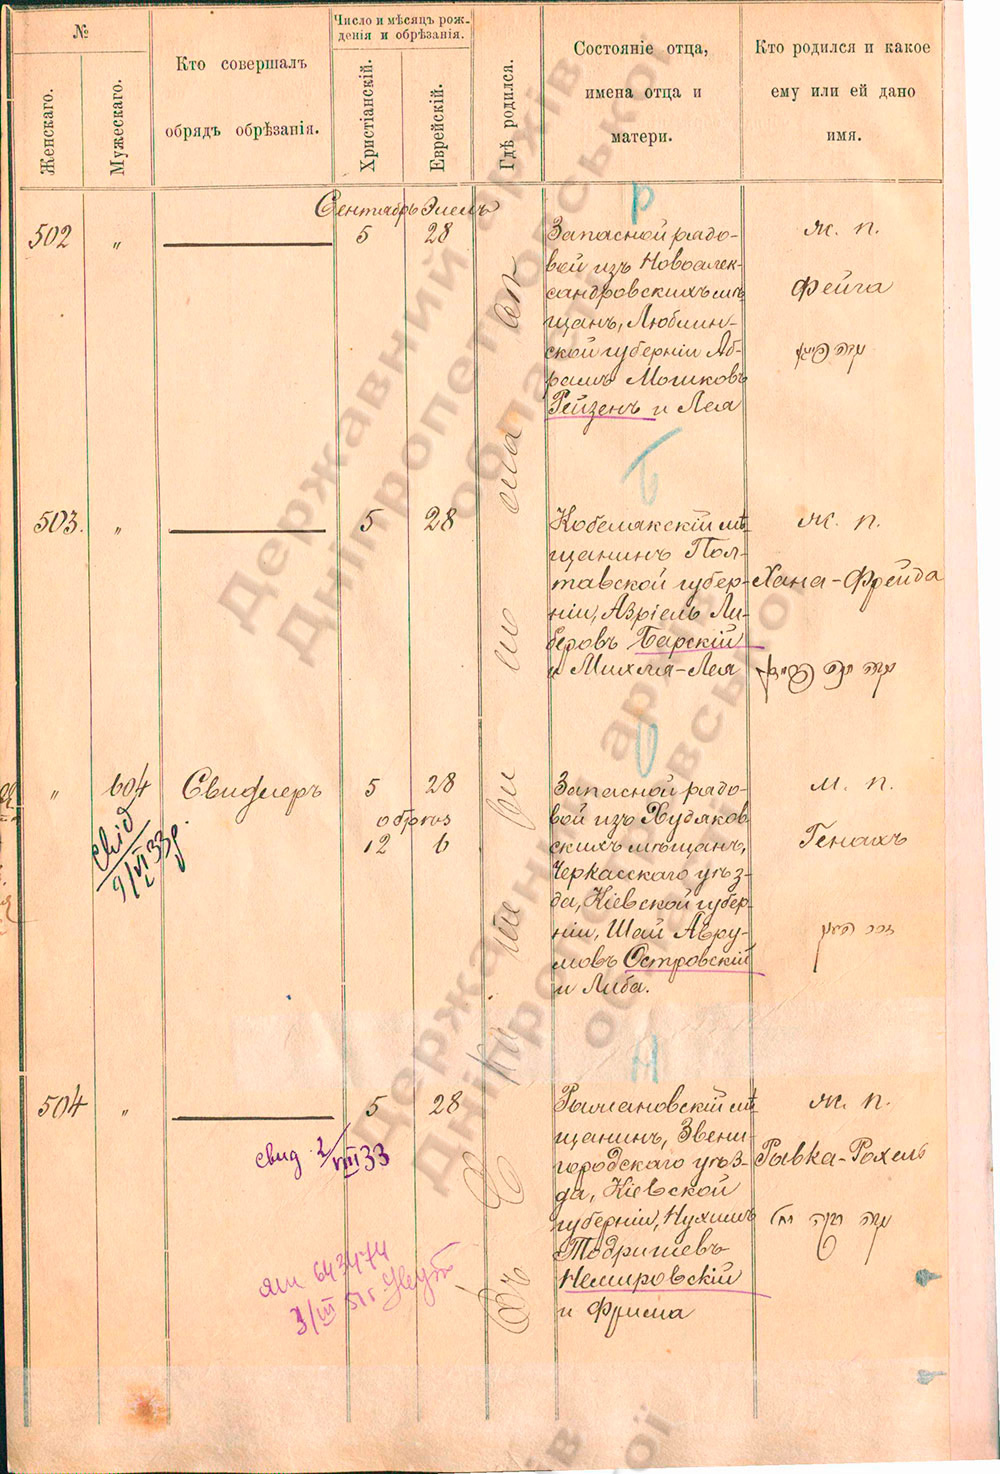 №
Женскаго.
Мужескаго.
Кто совершалъ
обрядъ обрѣзанія.
Число и мѣсяцъ рож-
денія и обрѣзанія.
Христіанскій.
Еврейскій.
Гдѣ родился.
Состояніе отца,
имена отца и
матери.
Кто родился и какое
ему или ей дано
имя.
Сентябрь Элелъ
Р
502 „ 5 28
Запасной рядо-
вой изъ Новоалек-
сандровскихъ мѣ-
щанъ, Люблин-
ской губерніи Аб-
рамъ Мошковъ
Рейзенъ и Лея
ж. п.
Фейга
Б
503. „ 5 28
Кобелякскій мѣ-
щанинъ Пол-
тавской губер-
ніи, Азріель Ли-
беровъ Барскій
и Михля-Лея
ж. п.
Хана-Фрейда
О
„ 604 Свидлеръ 5 28
обрѣз
12 6
свид
9/VI 33
Запасной рядо-
вой изъ Худяков
скихъ мѣщанъ,
Черкасскаго уѣз-
да, Кіевской губер-
ніи, Шай Авру-
мовъ Островскій
и Либа.
м. п.
Генахъ
Н
504 „ 5 28
свид. 2/VIII 33
ям 643474
3/III 51г.
Рыжановскій мѣ-
щанинъ, Звени-
городскаго уѣз-
да, Кіевской
губерніи, Нухимъ
Тодришевъ
Немировскій
и Фрима
ж. п.
Рывка-Рохель
Державний архів
Дніпропетровської
області
Державний архів
Дніпропетровської
області